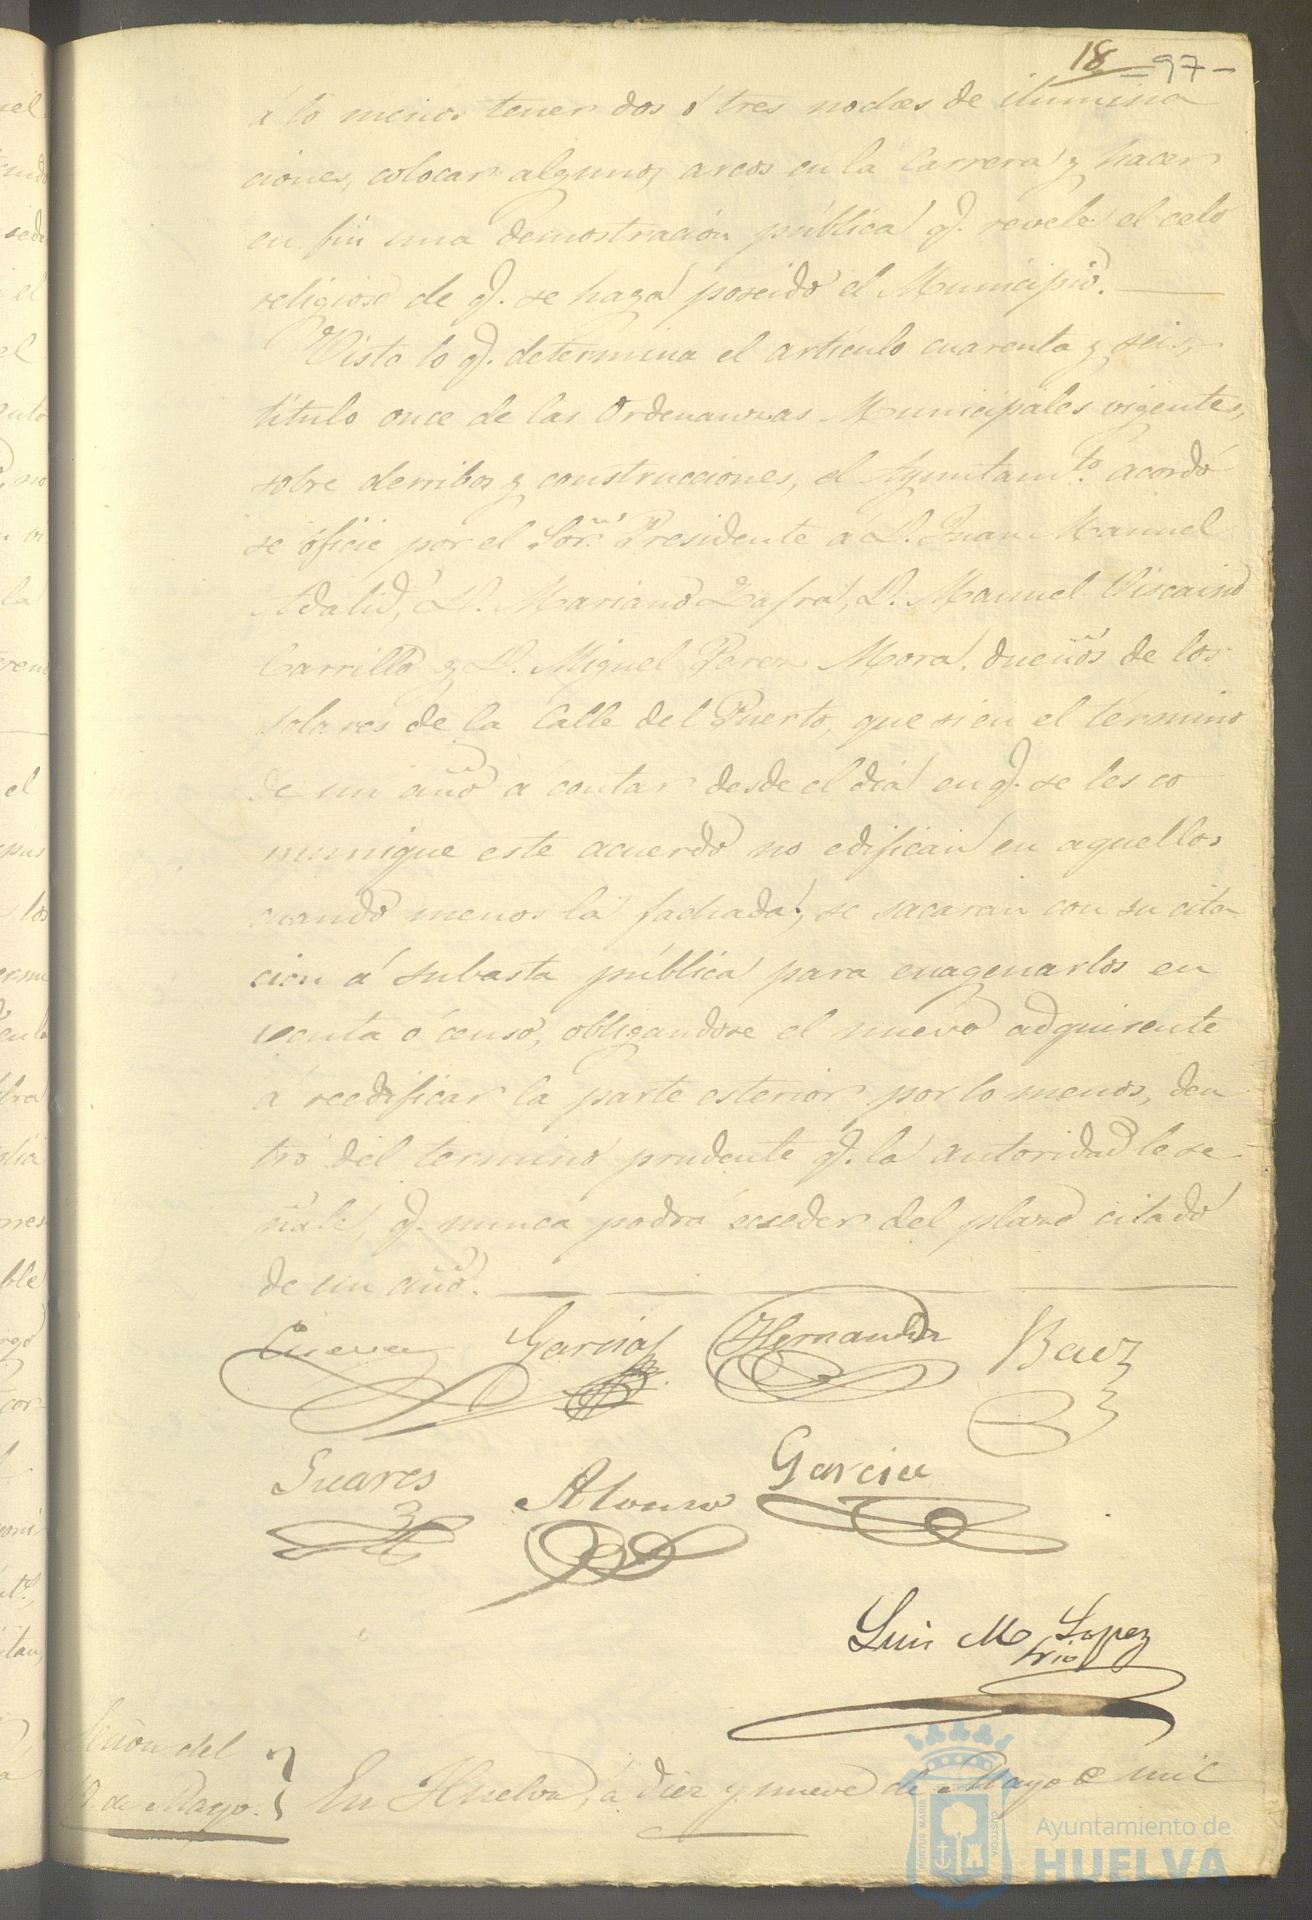 18 = 97 -
á lo menos tener dos ó tres noches de ilumina
ciones, colocar algunos arcos en la Carrera y hacer
en fin una demostración pública q. revele el celo
religioso de q. se haya poseido el Municipio.
Visto lo q. determina el articulo cuarenta y seis,
titulo once de las Ordenanzas Municipales vigentes,
sobre derribos y construcciones, el Ayuntamto. acordó
se oficie por el Sor. Presidente á D. Juan Manuel
Adalid, D. Mariano Zafra, D. Manuel Viscaino
Carrillo y D. Miguel Perez Mora, dueños de los
solares de la Calle del Puerto, que si en el termino
de un año á contar desde el dia en q. se les co
munique este acuerdo no edifican en aquellos
cuando menos la fachada, se sacaran con su cita-
cion á subasta pública para enagenarlos en
venta ó censo, obligandose el nuevo adquirente
á reedificar la parte esterior por lo menos, den
tro del termino prudente q. la autoridad le se-
ñale, q. nunca podrá esceder del plazo citado
de un año.
Garcia Hernandez Baez
Suares Alonso Garcia
Luis M Lopez
Srio
Sesion del
19 de Mayo.
En Huelva, á diez y nueve de Mayo de mil
Ayuntamiento de
HUELVA